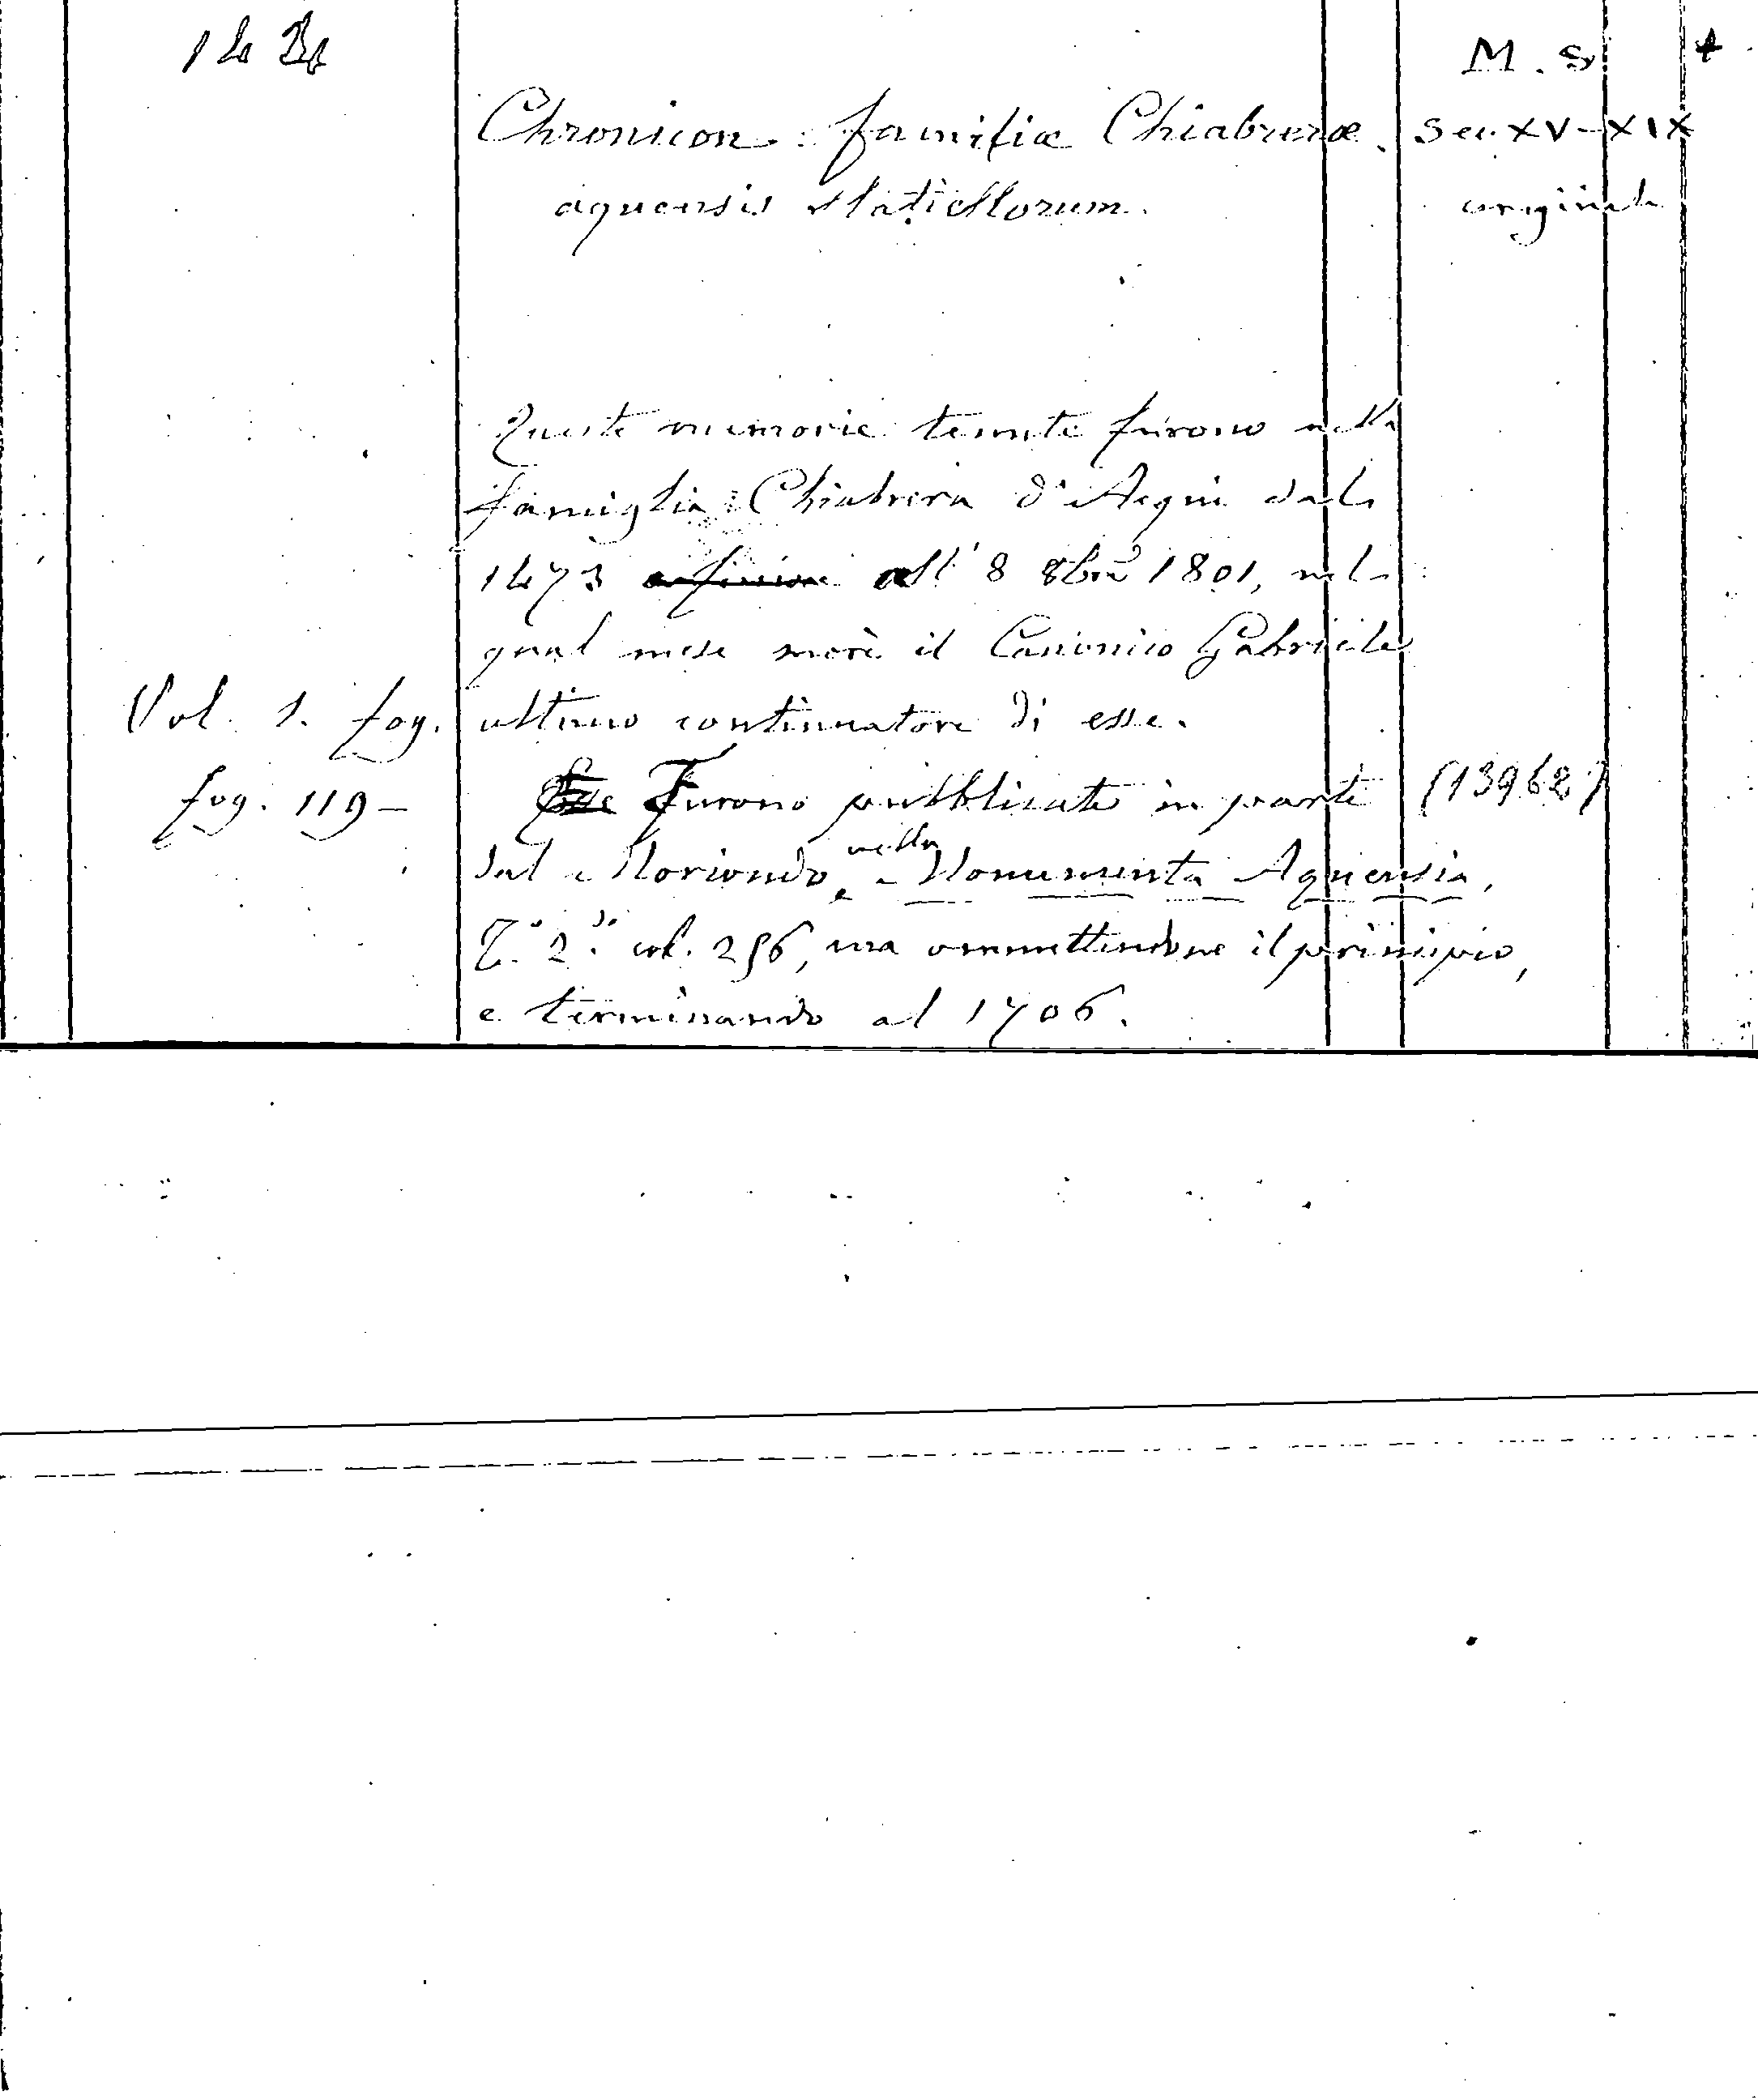 M. S. +
Chronicon familiæ Chiabreræ Sec. XV-XIX
aquensis Statiellorum. originale
Queste memorie tenute furono nella
famiglia Chiabrera d'Acqui dal
1473 all' 8 8bre 1801, nel
qual mese morì il Canonico Gabriele
Vol. 1. fog. ultimo continuatore di esse.
fog. 119 - Furono pubblicate in parte (13962)
dal Moriondo, nella Monumenta Aquensia,
T.° 2.do col. 256, ma ommettendone il principio,
e terminando al 1706.